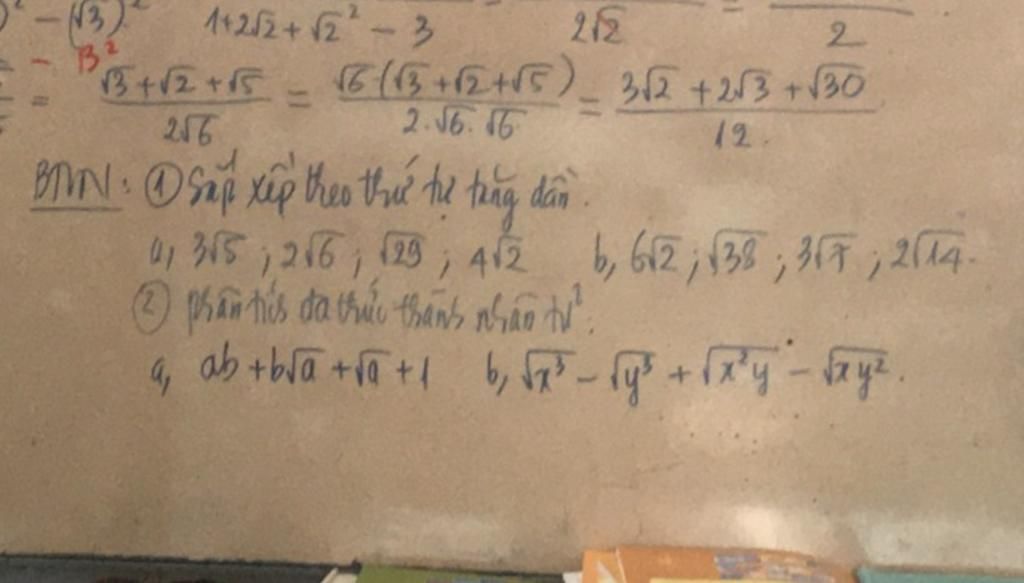 ² − (√3)² 1+2√2+√2² − 3 2√2 = 2
− B²
= √3+√2+√5 / 2√6 = √6·(√3+√2+√5) / 2·√6·√6 = 3√2+2√3+√30 / 12.
BTVN: ① Sắp xếp theo thứ tự tăng dần.
a, 3√5 ; 2√6 ; √29 ; 4√2 b, 6√2 ; √38 ; 3√7 ; 2√14.
② phân tích đa thức thành nhân tử.
a, ab+b√a+√a+1 b, √x³ − √y³ + √x²y − √xy².